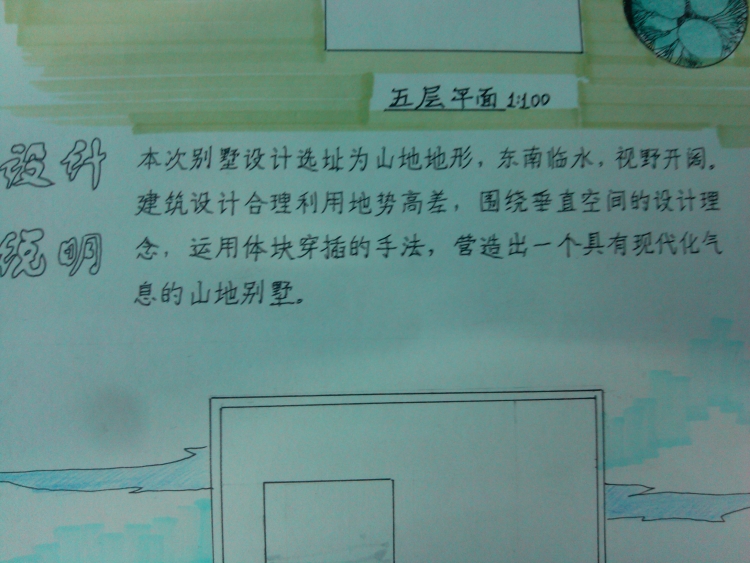 五层平面 1:100
设计
说明
本次别墅设计选址为山地地形，东南临水，视野开阔。
建筑设计合理利用地势高差，围绕垂直空间的设计理
念，运用体块穿插的手法，营造出一个具有现代化气
息的山地别墅。